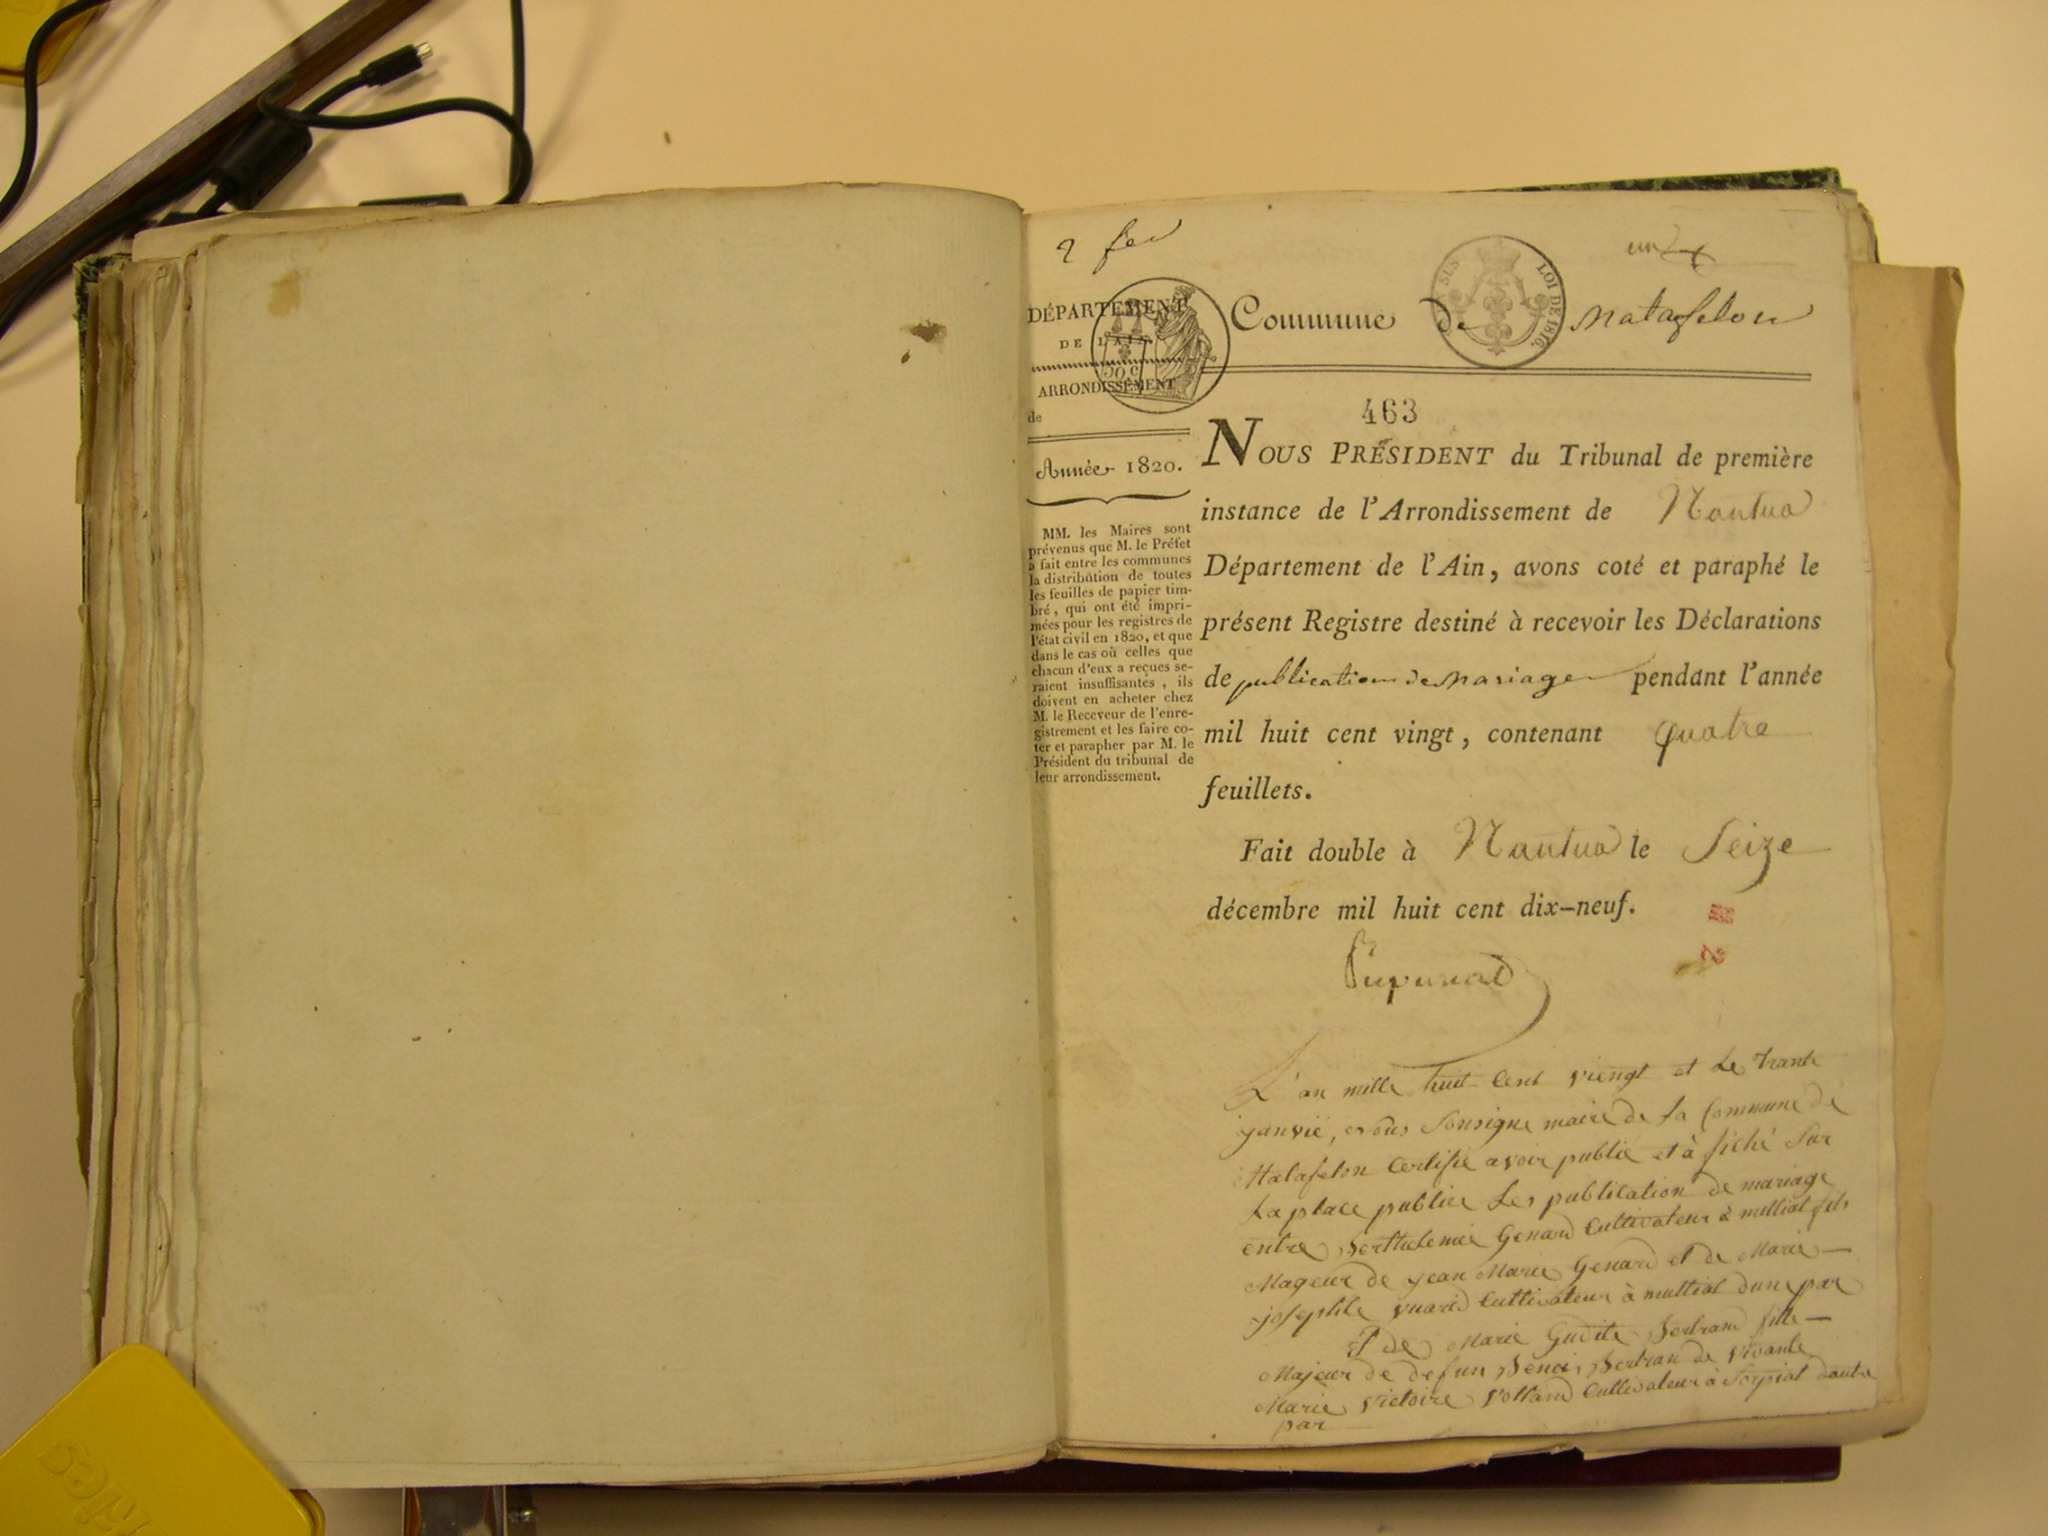 2 feu
un
DÉPARTEMENT
DE L'AIN.
ARRONDISSEMENT
de
50 c
Commune de Matafelon
LOI DE 1816.
463
Année 1820.
MM. les Maires sont
prévenus que M. le Préfet
a fait entre les communes
la distribution de toutes
les feuilles de papier tim-
bré, qui ont été impri-
mées pour les registres de
l'état civil en 1820, et que
dans le cas où celles que
chacun d'eux a reçues se-
raient insuffisantes, ils
doivent en acheter chez
M. le Receveur de l'enre-
gistrement et les faire co-
ter et parapher par M. le
Président du tribunal de
leur arrondissement.
NOUS PRÉSIDENT du Tribunal de première
instance de l'Arrondissement de Nantua
Département de l'Ain, avons coté et paraphé le
présent Registre destiné à recevoir les Déclarations
de publication de mariage pendant l'année
mil huit cent vingt, contenant quatre
feuillets.
Fait double à Nantua le Seize
décembre mil huit cent dix-neuf.
L'an mille huit Cent viengt et Le trante
janvié, nous Sousigne maire de La Commune de
Matafelon Certifie avoir publié et à fiché Sur
La place publice Les publication de mariage
entre Berthelemie Genard Cultivateur à milliat fils
Mageur de jean Marie Genard et de Marie
josephte vuard Cultivateur à milliat dune par
Et de Marie Gudite Bertrand fille
Majeur de defun Benoi Bertran de vivante
Marie Victoire Volland Cultivateur à Sorpiat dautre
par